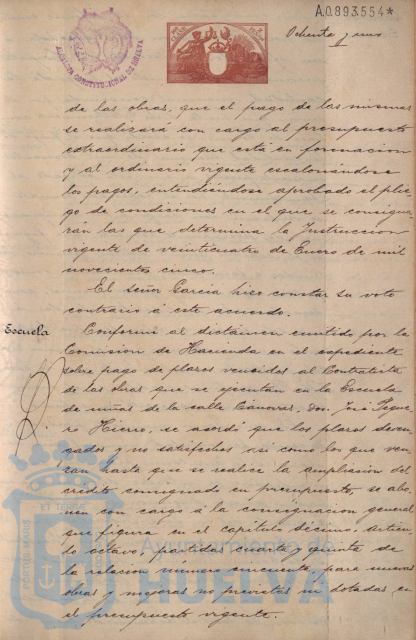 A.0.893.554*
Ochenta y uno
ALCALDIA CONSTITUCIONAL DE HUELVA
de las obras, que el pago de las mismas
se realizará con cargo al presupuesto
extraordinario que está en formacion
y al ordinario vigente escalonándose
los pagos, entendiéndose aprobado el plie-
go de condiciones en el que se consigna-
ran las que determina la Instruccion
vigente de veinticuatro de Enero de mil
novecientos cinco.
El señor Garcia hizo constar su voto
contrario á este acuerdo.
Escuela
Conforme al dictámen emitido por la
Comision de Hacienda en el expediente
sobre pago de plazos vencidos al Contratista
de las obras que se ejecutan en la Escuela
de niñas de la calle Cánovas, Don José Segue-
ro Hierro, se acordó que los plazos deven-
gados y no satisfechos asi como los que ven-
zan hasta que se realice la ampliasion del
credito consignado en presupuesto, se abo-
nen con cargo á la consignacion general
que figura en el capítulo décimo, articu-
lo octavo, partidas cuarta y quinta de
la relacion número cincuenta, para nuevas
obras y mejoras no previstas ni dotadas en
el presupuesto vigente.
Ayuntamiento de
HUELVA